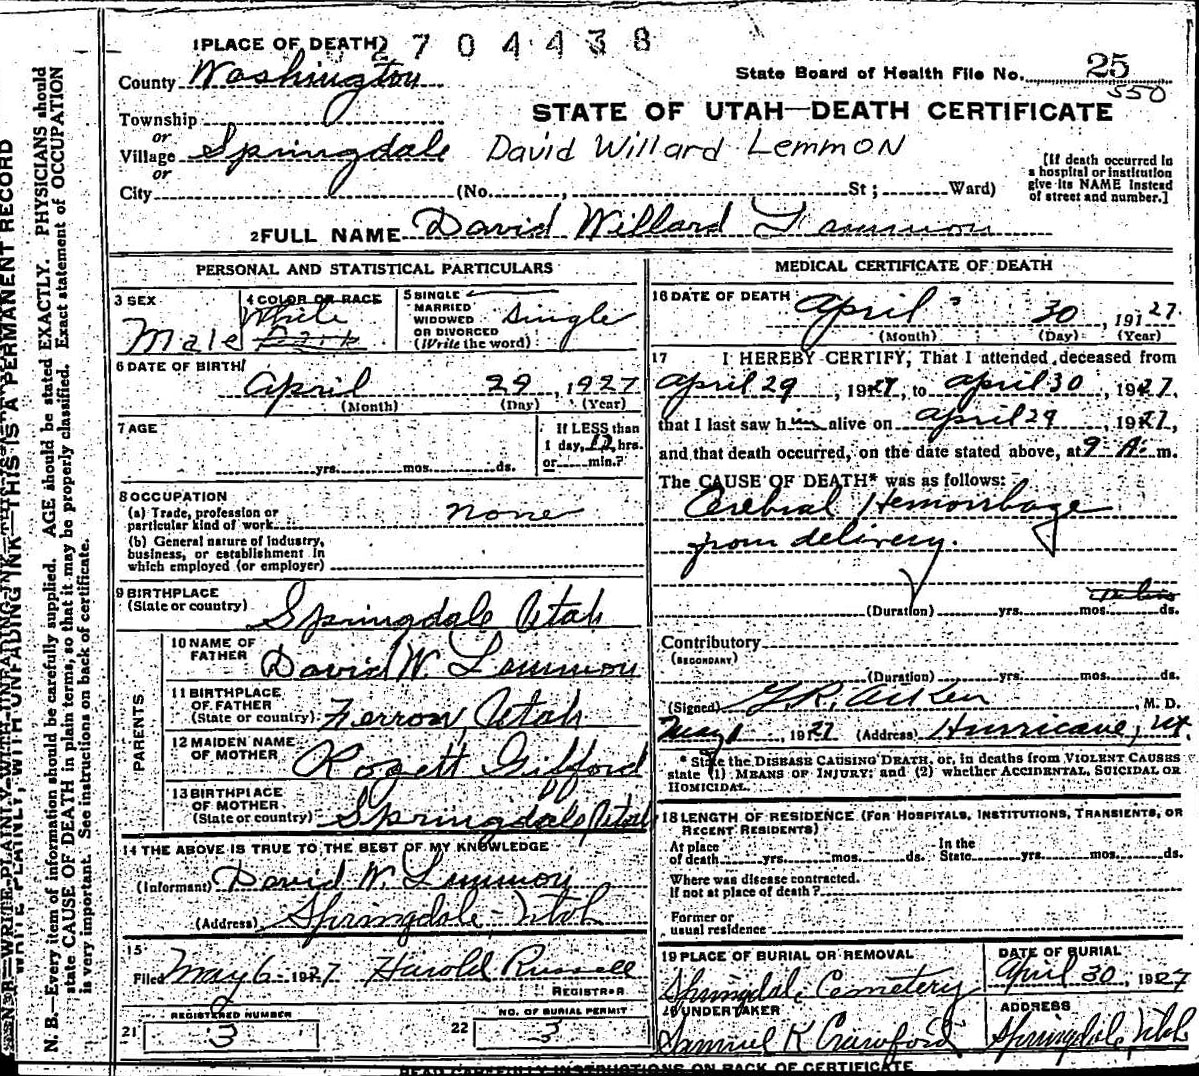 1 PLACE OF DEATH 2 7 0 4 4 3 8
County Washington
State Board of Health File No. 25
550
Township
or
STATE OF UTAH—DEATH CERTIFICATE
Village Springdale David Willard Lemmon
or
City (No. , St ; Ward)
[If death occurred in
a hospital or institution
give its NAME instead
of street and number.]
2 FULL NAME David Willard Lemmon
PERSONAL AND STATISTICAL PARTICULARS
3 SEX
Male
4 COLOR OR RACE
White
5 SINGLE
MARRIED
WIDOWED
OR DIVORCED
(Write the word)
Single
6 DATE OF BIRTH
April 29, 1927
(Month) (Day) (Year)
7 AGE
yrs. mos. ds.
If LESS than
1 day, 12 hrs.
or min.?
8 OCCUPATION
(a) Trade, profession or
particular kind of work none
(b) General nature of industry,
business, or establishment in
which employed (or employer)
9 BIRTHPLACE
(State or country) Springdale Utah
PARENTS
10 NAME OF
FATHER David W. Lemmon
11 BIRTHPLACE
OF FATHER
(State or country) Ferron, Utah
12 MAIDEN NAME
OF MOTHER Rozett Gifford
13 BIRTHPLACE
OF MOTHER
(State or country) Springdale, Utah
14 THE ABOVE IS TRUE TO THE BEST OF MY KNOWLEDGE
(Informant) David W. Lemmon
(Address) Springdale, Utah
15
Filed May 6 1927 Harold Russell
REGISTRAR
REGISTERED NUMBER
21 3
NO. OF BURIAL PERMIT
22 3
MEDICAL CERTIFICATE OF DEATH
16 DATE OF DEATH April 30, 19127
(Month) (Day) (Year)
17 I HEREBY CERTIFY, That I attended deceased from
April 29, 1927, to April 30, 1927,
that I last saw him alive on April 29, 1927,
and that death occurred, on the date stated above, at 9 A. m.
The CAUSE OF DEATH* was as follows:
Cerebral Hemorrhage
from delivery.
(Duration) yrs. mos. ds.
Contributory
(SECONDARY)
(Duration) yrs. mos. ds.
(Signed) Aiken M. D.
May 1, 1927 (Address) Hurricane, Ut.
* State the DISEASE CAUSING DEATH, or, in deaths from VIOLENT CAUSES
state (1) MEANS OF INJURY; and (2) whether ACCIDENTAL, SUICIDAL OR
HOMICIDAL.
18 LENGTH OF RESIDENCE (FOR HOSPITALS, INSTITUTIONS, TRANSIENTS, OR
RECENT RESIDENTS)
At place
of death yrs. mos. ds.
In the
State yrs. mos. ds.
Where was disease contracted,
If not at place of death?
Former or
usual residence
19 PLACE OF BURIAL OR REMOVAL
Springdale Cemetery
DATE OF BURIAL
April 30, 1927
20 UNDERTAKER
Samuel K Crawford
ADDRESS
Springdale, Utah
READ CAREFULLY INSTRUCTIONS ON BACK OF CERTIFICATE
WRITE PLAINLY, WITH UNFADING INK—THIS IS A PERMANENT RECORD
N. B.—Every item of information should be carefully supplied. AGE should be stated EXACTLY. PHYSICIANS should
state CAUSE OF DEATH in plain terms, so that it may be properly classified. Exact statement of OCCUPATION
is very important. See instructions on back of certificate.